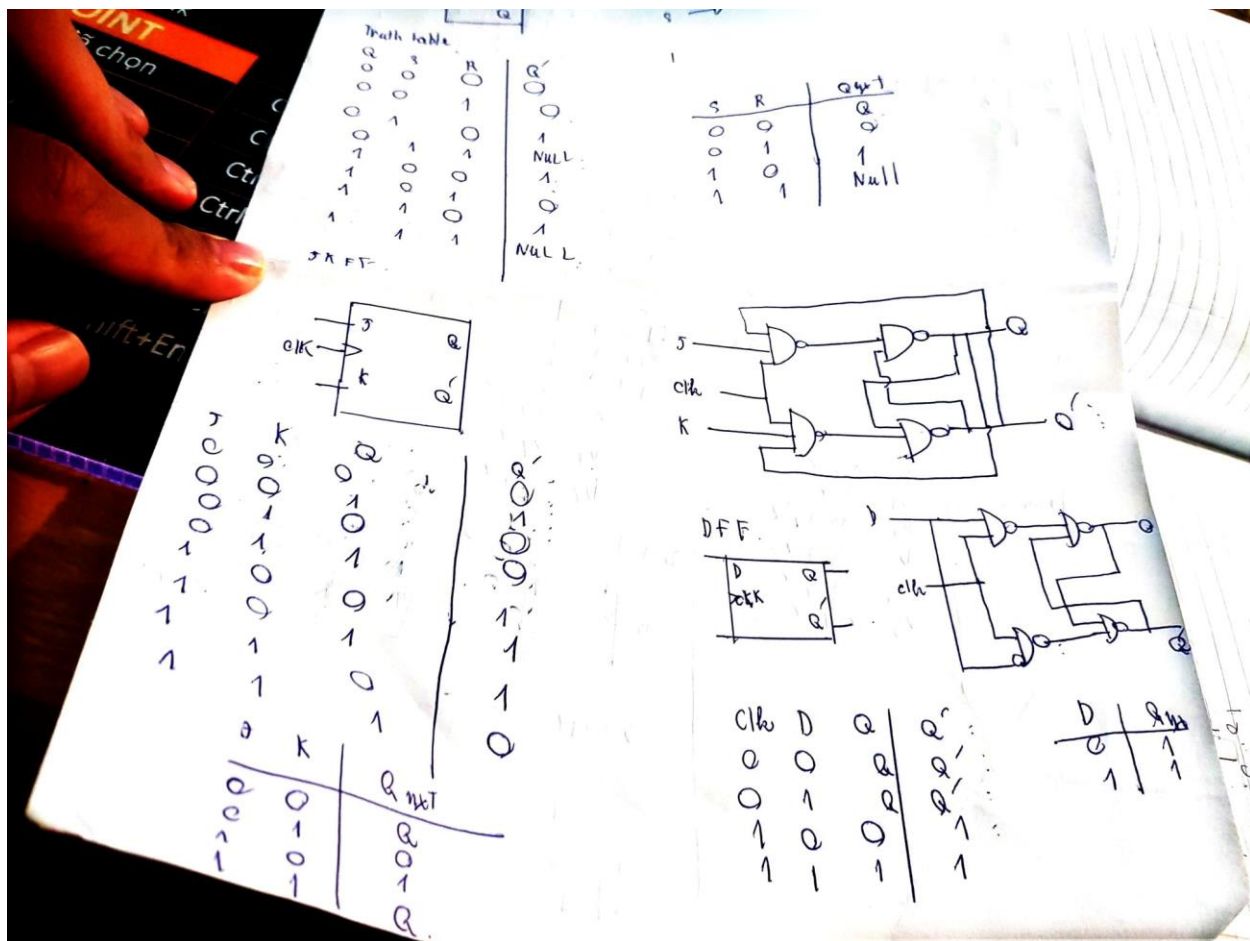 OINT
chọn
Ctrl
Shift+En
Q
Truth table
Q S R Q'
0 0 0 0
0 0 1 0
0 1 0 1
0 1 1 NULL
1 0 0 1
1 0 1 0
1 1 0 1
1 1 1 NULL
S R Qnxt
0 0 Q
0 1 0
1 0 1
1 1 Null
JK FF
J Q
clk
K Q'
J K Q Q'
0 0 0 0
0 0 1
0 1 0 0
0 1 1 0
1 0 0 1
1 0 1 1
1 1 0 1
1 1 1 0
J K Q nxT
0 0 Q
0 1 0
1 0 1
1 1 Q
J
clk
K
Q
Q'
DFF
D Q
clk
Q'
D
clk
Q
Q
Clk D Q Q'
0 0 Q Q'
0 1 Q Q'
1 0 0 1
1 1 1 1
D Q nxt
0 1
1 1